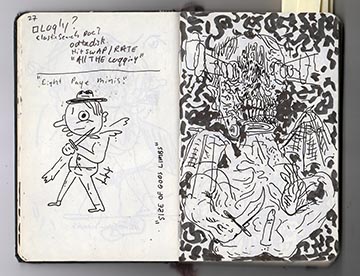 27
□ Logly?
Elasticsearch Roc!
outtadisk
Hit SWAP / RATE
"ALL THE Logging"
"Eight Page Minis!"
"SIZE OF GODS LIMBS"